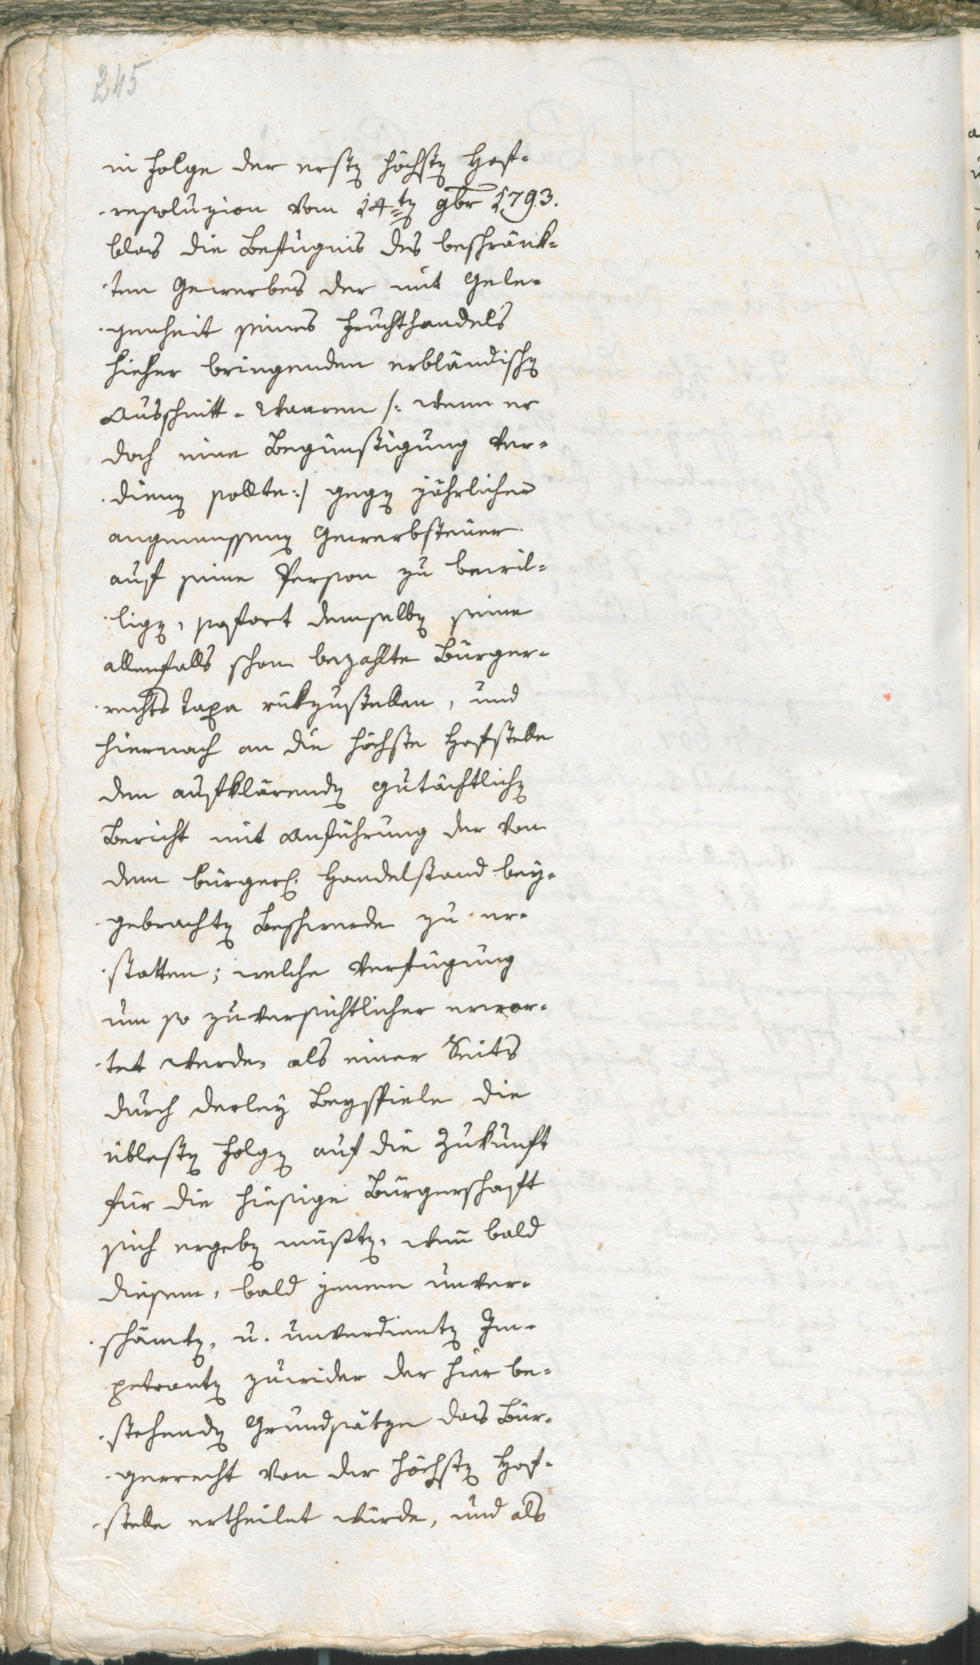 245
in Folge der ersten höchsten Hof-
resoluzion vom 14ten 9br 1793.
blos die Befugnis des beschränk-
ten Gewerbes der mit Gele-
genheit seines Fruchthandels
hieher bringenden erbländischen
Ausschnitt-Waaren /: wenn er
doch eine Begünstigung ver-
dienen sollte :/ gegen jährlicher
angemessenen Gewerbsteuer
auf seine Person zu bewil-
ligen, sofort demselben seine
allenfalls schon bezahlte Bürger-
rechts Taxa rükzustellen, und
hiernach an die höchste Hofstelle
den aufklärenden gutächtlichen
Bericht mit Anführung der von
dem bürgerl. Handelstand bey-
gebrachten Beschwerde zu er-
statten; welche Verfügung
um so zuversichtlicher erwar-
tet werde, als einer Seits
durch derley Beyspiele die
üblesten Folgen auf die Zukunft
für die hiesige Bürgerschaft
sich ergeben müßten, wenn bald
diesem, bald jenem unver-
schämten, u. unverdienten Im-
petranten zuwider der hier be-
stehenden Grundsätze das Bür-
gerrecht von der höchsten Hof-
stelle ertheilet würde, und als